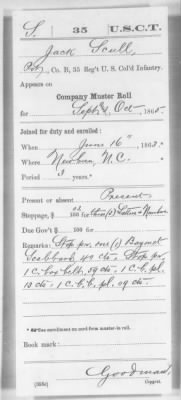 S. 35 U.S.C.T.
Jack Scull
Pvt, Co. B, 35 Reg't U. S. Col'd Infantry.
Appears on
Company Muster Roll
for Sept & Oct, 1865.
Joined for duty and enrolled:
When June 16", 1863.
Where Newbern, N.C.
Period 3 years.*
Present or absent Present
Stoppage, $ 100 for
Due Gov't $ 100 for
Remarks: Stop pr. one (1) Bayonet
Scabbard, 49 cts. Stop pr.
1 C. box belt, 59 cts. 1 C. b. pl.
13 cts. 1 C. b. b. pl. 09 cts.
*See enrollment on card from muster-in roll.
Book mark:
Goodman
(358c) Copyist.